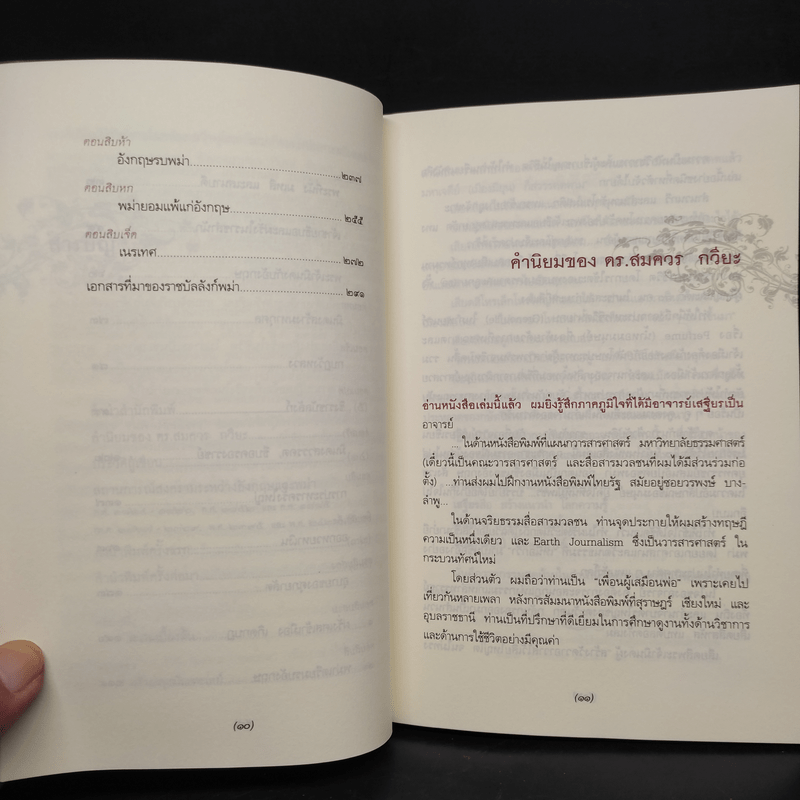 ตอนสิบห้า
อังกฤษรบพม่า.......................................๒๓๗
ตอนสิบหก
พม่ายอมแพ้แก่อังกฤษ.............................๒๕๕
ตอนสิบเจ็ด
เนรเทศ...............................................๒๗๒
เอกสารที่มาของราชบัลลังก์พม่า...........................๒๙๑
(๑๐)
คำนิยมของ ดร.สมควร กวียะ
อ่านหนังสือเล่มนี้แล้ว ผมยิ่งรู้สึกภาคภูมิใจที่ได้มีอาจารย์เสฐียรเป็น
อาจารย์
... ในด้านหนังสือพิมพ์ที่แผนกวารสารศาสตร์ มหาวิทยาลัยธรรมศาสตร์
(เดี๋ยวนี้เป็นคณะวารสารศาสตร์ และสื่อสารมวลชนที่ผมได้มีส่วนร่วมก่อ
ตั้ง) ...ท่านส่งผมไปฝึกงานหนังสือพิมพ์ไทยรัฐ สมัยอยู่ซอยวรพงษ์ บาง-
ลำพู...
ในด้านจริยธรรมสื่อสารมวลชน ท่านจุดประกายให้ผมสร้างทฤษฎี
ความเป็นหนึ่งเดียว และ Earth Journalism ซึ่งเป็นวารสารศาสตร์ ใน
กระบวนทัศน์ใหม่
โดยส่วนตัว ผมถือว่าท่านเป็น "เพื่อนผู้เสมือนพ่อ" เพราะเคยไป
เที่ยวกันหลายเพลา หลังการสัมมนาหนังสือพิมพ์ที่สุราษฎร์ เชียงใหม่ และ
อุบลราชธานี ท่านเป็นที่ปรึกษาที่ดีเยี่ยมในการศึกษาดูงานทั้งด้านวิชาการ
และด้านการใช้ชีวิตอย่างมีคุณค่า
(๑๑)